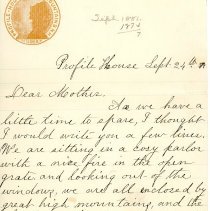 Sept 1881.
1874
?
Profile House Sept 24th
Dear Mother.
As we have a
little time to spare, I thought
I would write you a few lines.
We are sitting in a cosy parlor
with a nice fire in the open
grate and looking out of the
windows, we are all enclosed by
great high mountains, and the